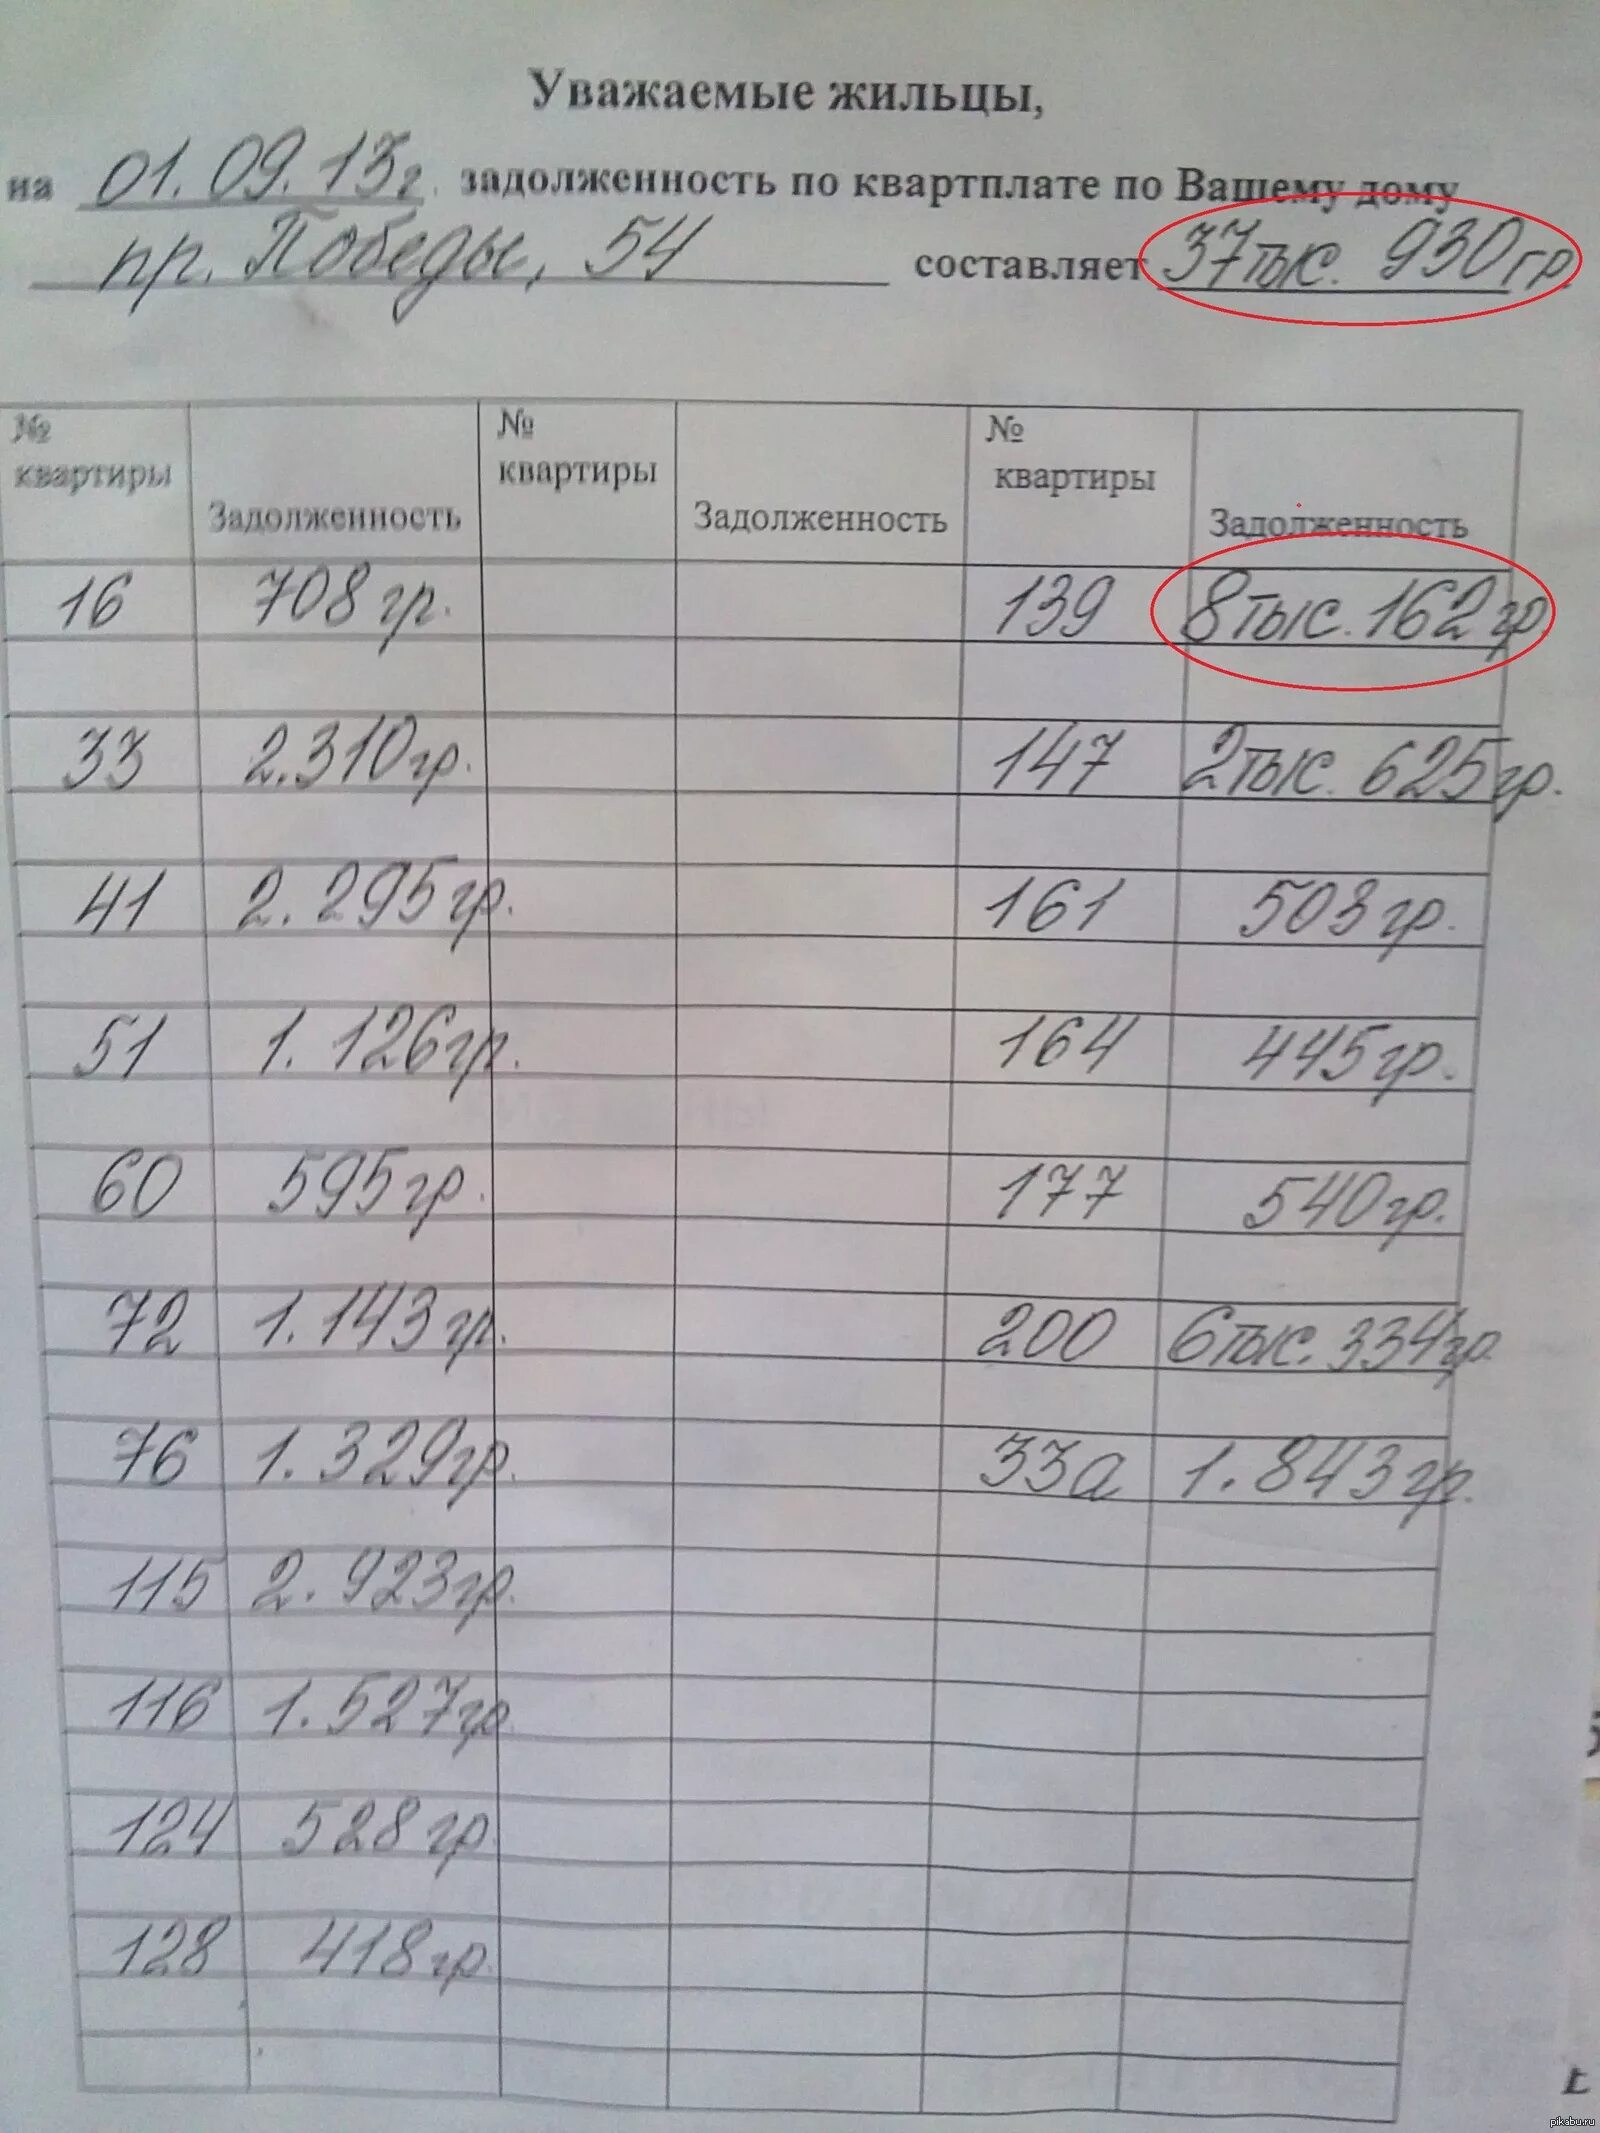 Уважаемые жильцы,
на 01.09.13г. задолженность по квартплате по Вашему дому
пр. Победы, 54 составляет 37тыс. 930гр.
№ квартиры Задолженность № квартиры Задолженность № квартиры Задолженность
16 708гр. 139 8тыс. 162гр.
33 2.310гр. 147 2тыс. 625гр.
41 2.295гр. 161 503гр.
51 1.126гр. 164 445гр.
60 595гр. 177 540гр.
72 1.143гр. 200 6тыс. 334гр.
76 1.329гр. 33а 1.843гр.
115 2.923гр.
116 1.527гр.
124 528гр.
128 418гр.
pikabu.ru